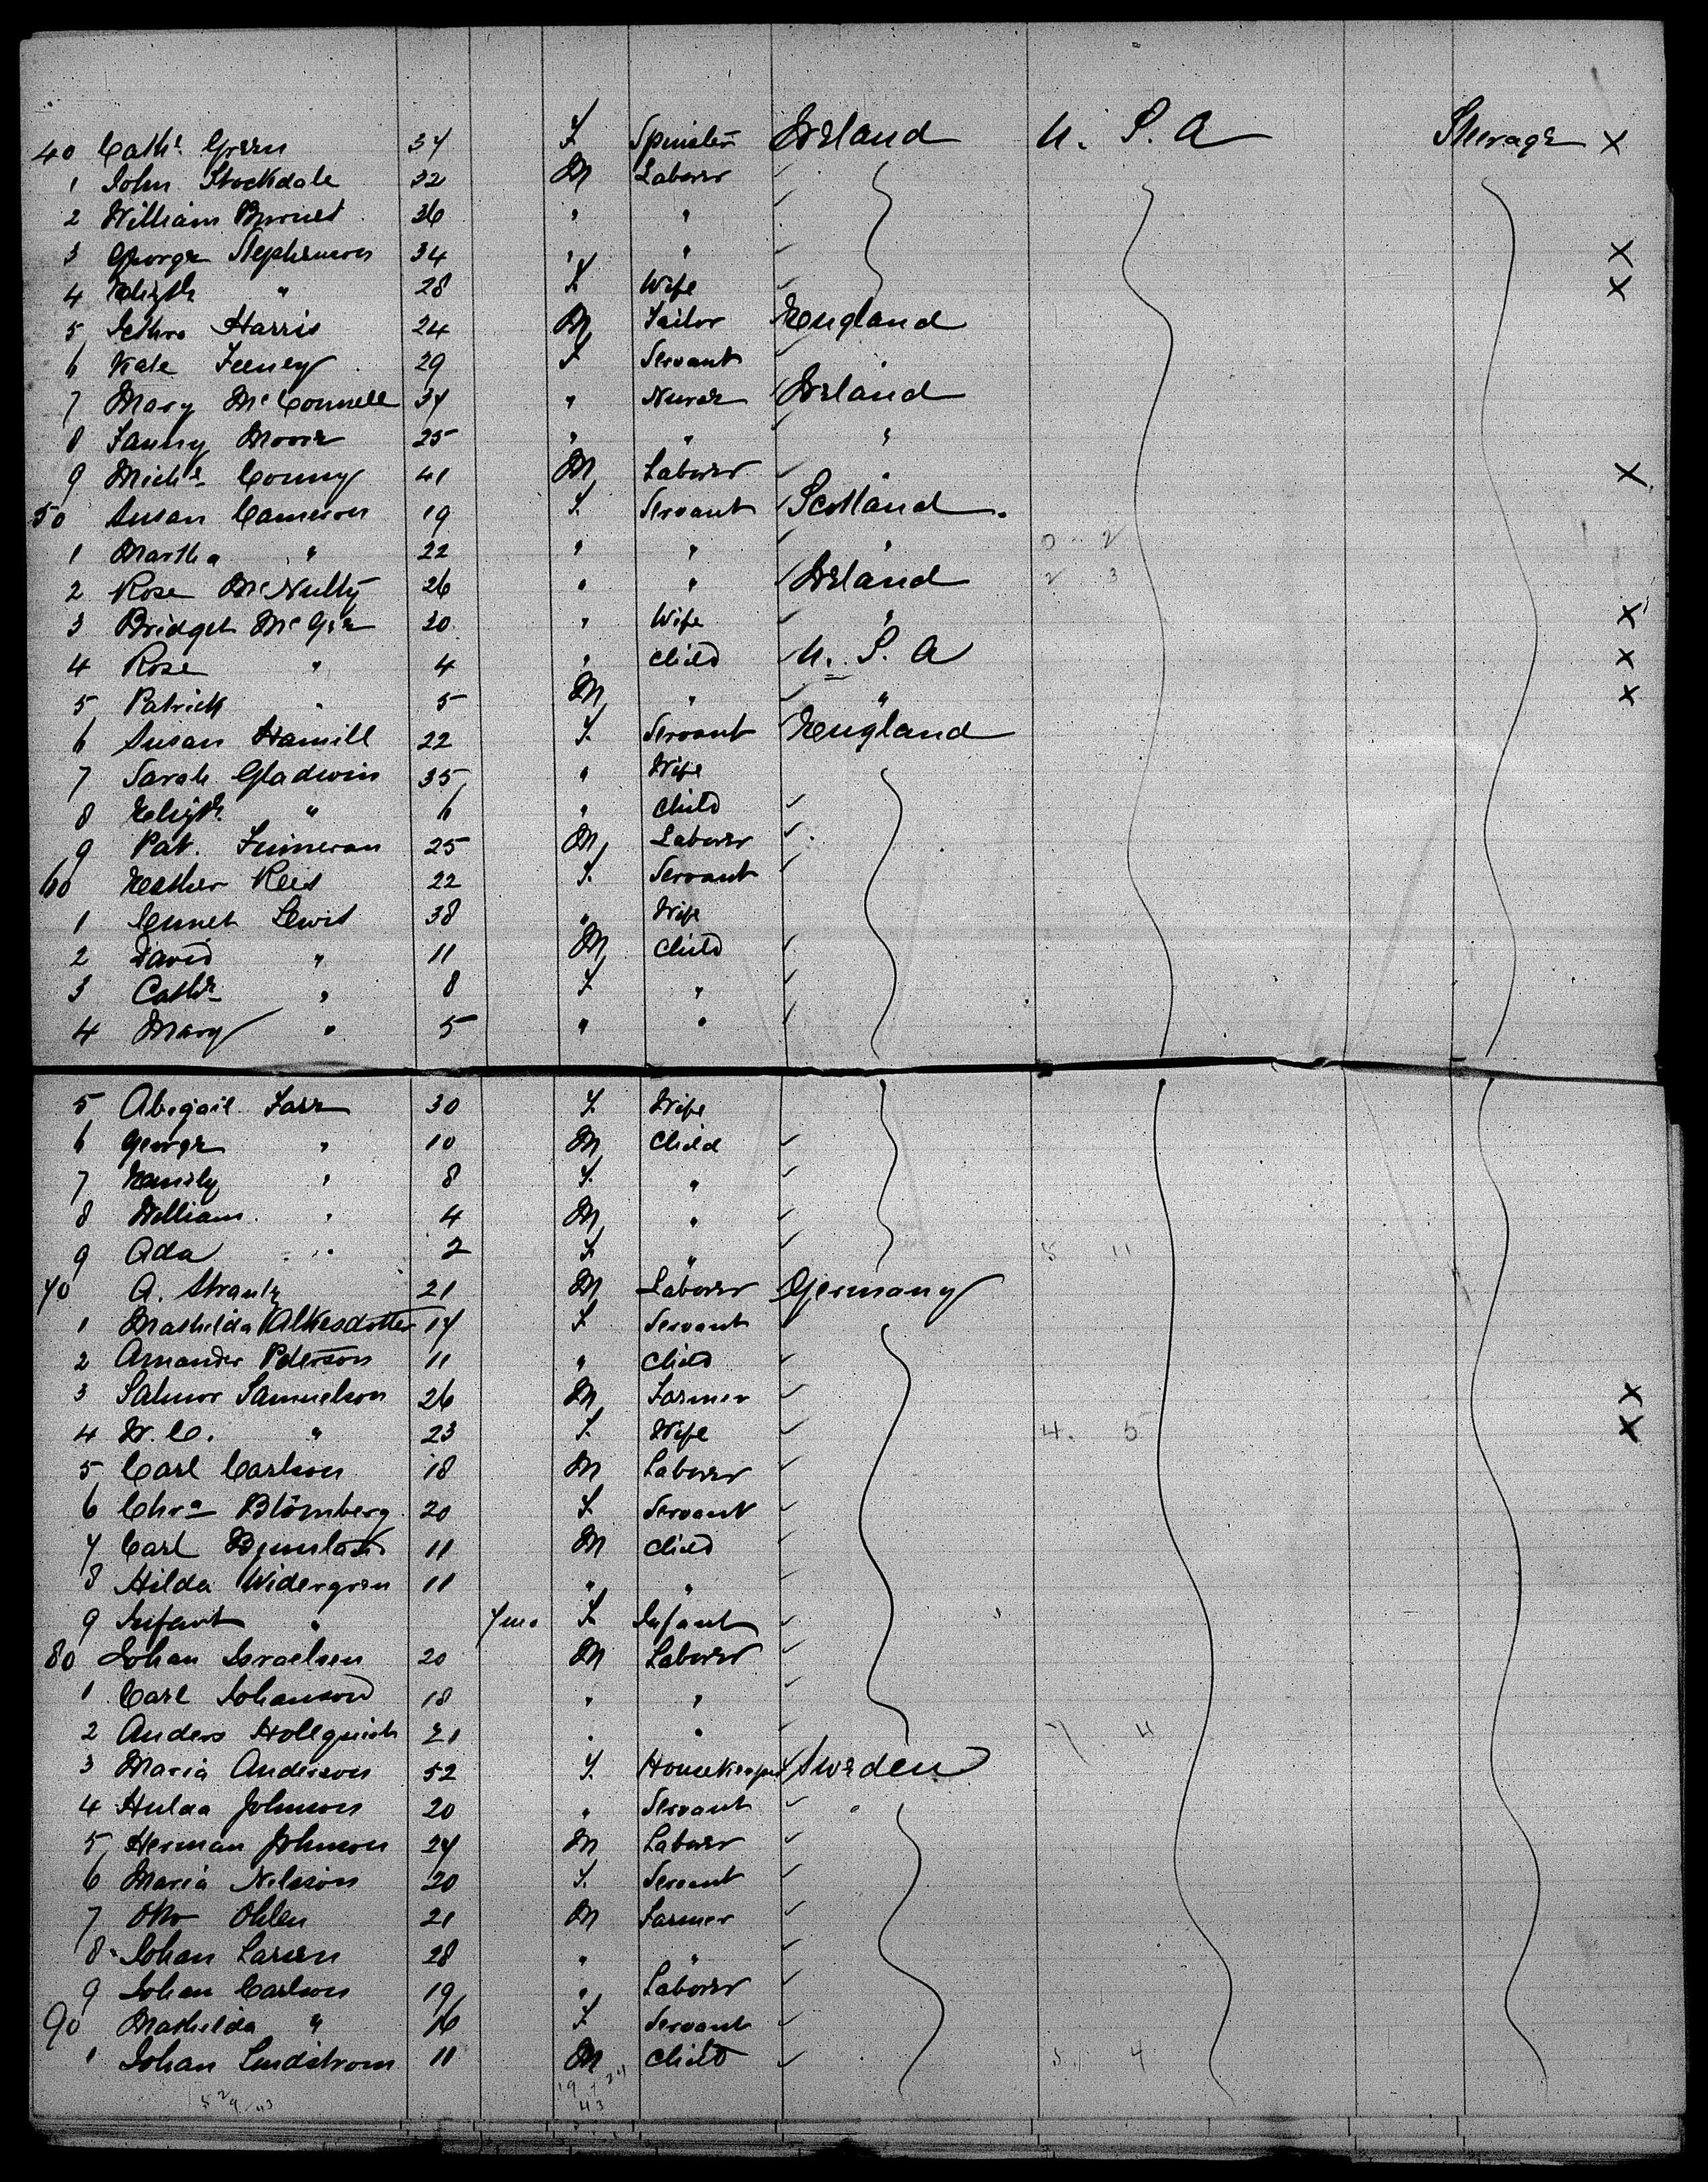 40 Cathe Green 34 F Spinster Ireland U. S. A Steerage X
1 John Stockdale 32 M Laborer
2 William Burnes 36 " "
3 George Stephenson 34 " " X
4 Elizth " 28 F Wife X
5 Jethro Harris 24 M Tailor England
6 Kate Feeney 29 F Servant "
7 Mary McConnell 34 " Nurse Ireland
8 Fanny Moore 25 " " "
9 Michl Conny 41 M Laborer " X
50 Susan Cameron 19 F Servant Scotland
1 Martha " 22 " " "
2 Rose McNulty 26 " " Ireland
3 Bridget McGee 30 " Wife " X
4 Rose " 4 " Child U. S. A X
5 Patrick " 5 M " " X
6 Susan Hamill 22 F Servant England
7 Sarah Gladwin 35 " Wife
8 Elizth " 6 " Child
9 Pat. Finneran 25 M Laborer
60 Esther Rees 22 F Servant
1 Jennet Lewis 38 " Wife
2 David " 11 M Child
3 Cathe " 8 F "
4 Mary " 5 " "
5 Abigail Farr 30 F Wife
6 George " 10 M Child
7 Emily " 8 F "
8 William " 4 M "
9 Ada " 2 F "
70 A. Strantz 21 M Laborer Germany
1 Mathilda Alkesdotter 17 F Servant
2 Amander Peterson 11 " Child
3 Salmor Samuelson 26 M Farmer X
4 W. C. " 23 F Wife X
5 Carl Carlson 18 M Laborer
6 Chra Blömberg 20 F Servant
7 Carl 11 M Child
8 Hilda Widergren 11 " "
9 Infant " 7mo F Infant
80 Johan Israelsen 20 M Laborer
1 Carl Johanson 18 " "
2 Anders Hollquist 21 " "
3 Maria Anderson 52 F Housekeeper Sweden
4 Hulda Johnson 20 " Servant
5 Herman Johnson 24 M Laborer
6 Maria Nelsson 20 F Servant
7 Otto Ohlen 21 M Farmer
8 Johan Larsen 28 " "
9 Johan Carlson 19 " Laborer
90 Mathilda " 16 F Servant
1 Johan Lindstrom 11 M Child